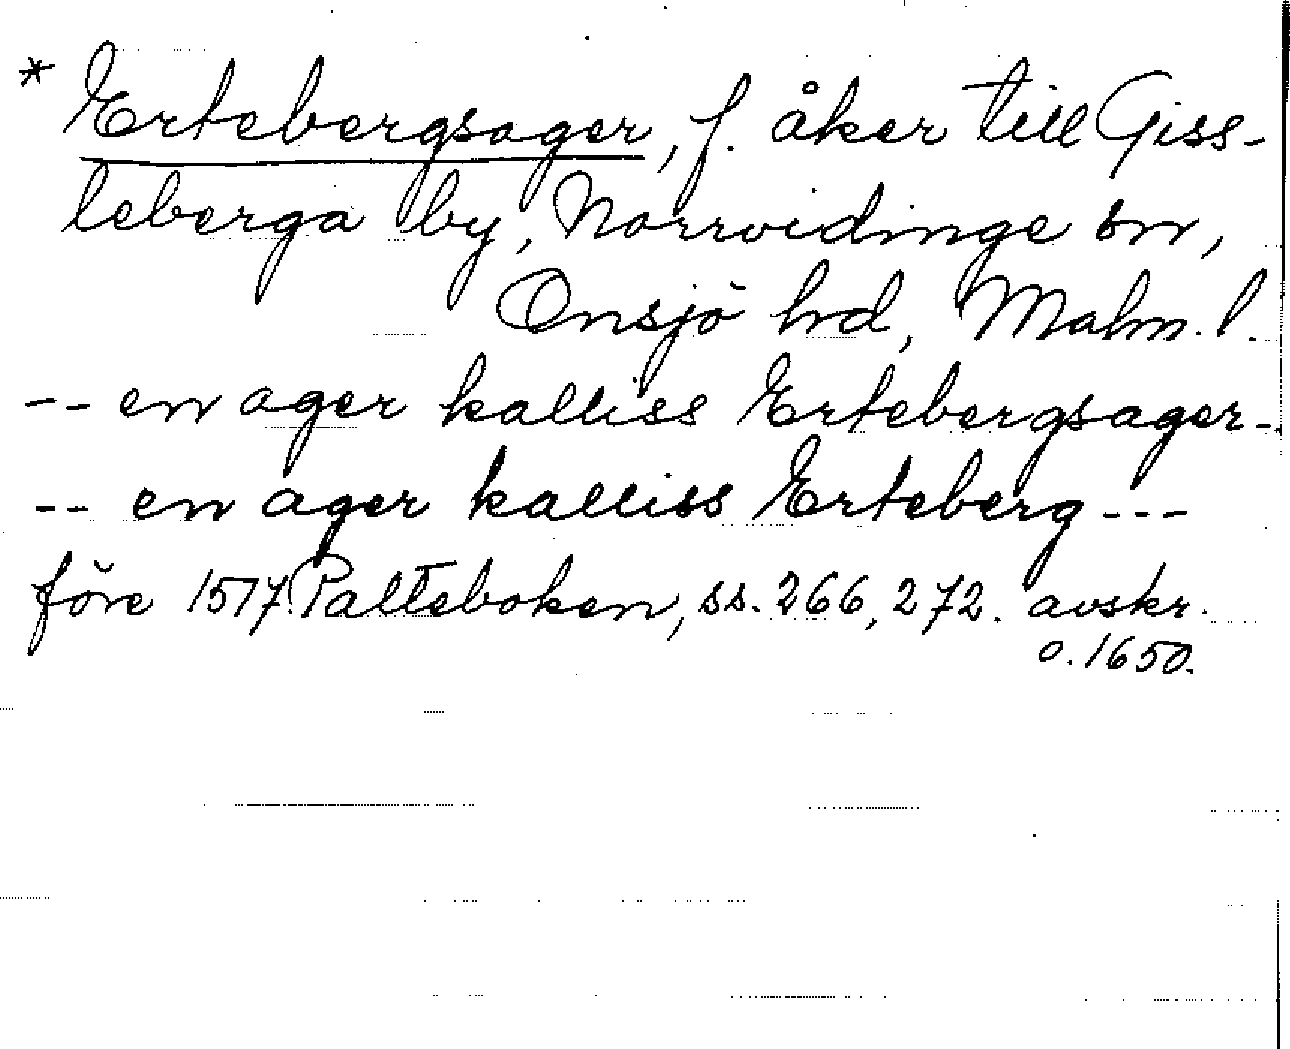 * Ertebergsager, f. åker till Giss-
leberga by, Norrvidinge sn,
Onsjö hd, Malm. l.
-- en ager kalliss Ertebergsager--
-- en ager kalliss Erteberg---
före 1517. Palteboken, ss. 266, 272. avskr.
o. 1650.